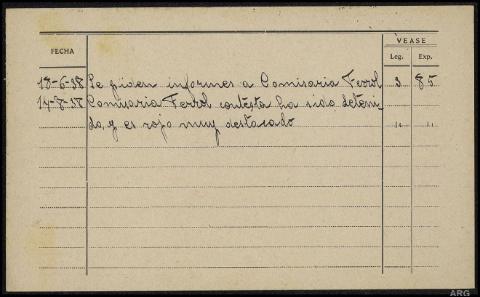 VEASE
FECHA Leg. Exp.
18-6-38 Se piden informes a Comisaria Ferrol 3 85
14-8-38 Comisaria Ferrol contesta ha sido deteni-
do, y es rojo muy destacado " "
ARG